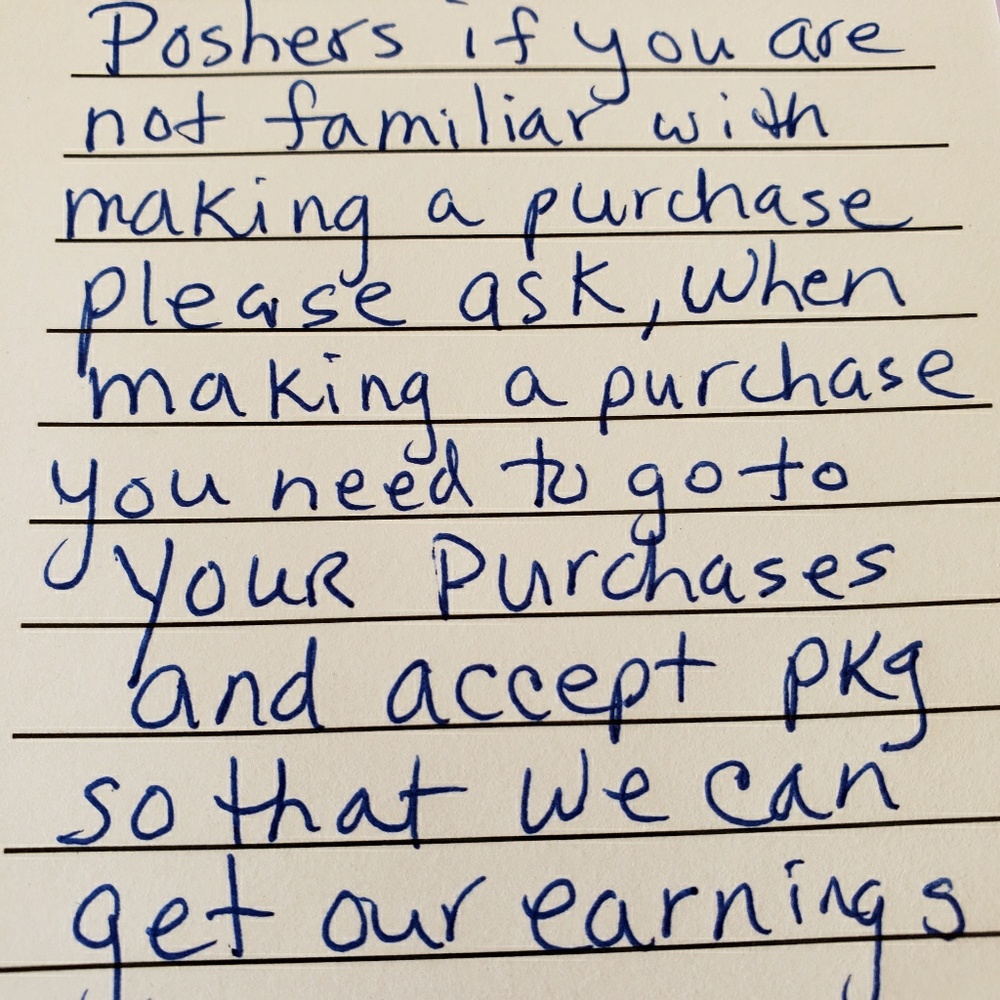 Poshers if you are
not familiar with
making a purchase
please ask, when
making a purchase
you need to go to
your Purchases
and accept pkg
so that we can
get our earnings